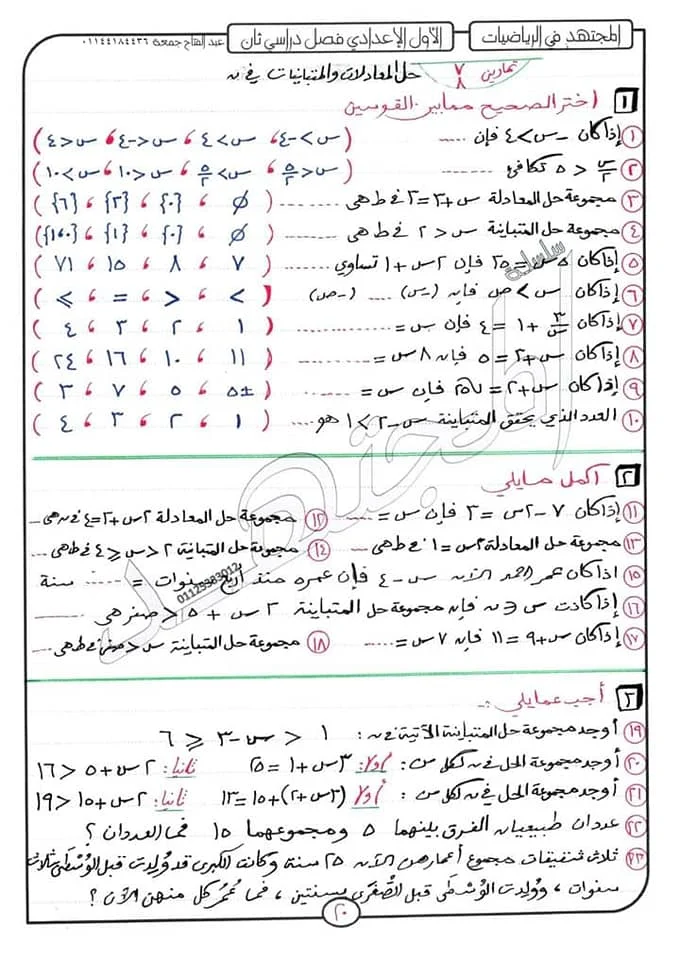 المجتهد في الرياضيات
الأول الإعدادي فصل دراسي ثان
عبد الفتاح جمعة ٠١١٤٤١٨٤٤٣٦
تمارين ٧/٨ حل المعادلات والمتباينات في ن
١ اختر الصحيح مما بين القوسين
١ إذا كان -س > ٤ فإن ..... (س > -٤ ، س > ٤ ، س < -٤ ، س < ٤)
٢ س/٢ < ٥ تكافئ ...... (س < ٥/٢ ، س > ٥/٢ ، س < ١٠ ، س > ١٠)
٣ مجموعة حل المعادلة س + ٣ = ٣ في ط هي ........ (∅ ، {٠} ، {٣} ، {٦})
٤ مجموعة حل المتباينة س < ٢ في ط هي ........ (∅ ، {٠} ، {١} ، {١،٠})
٥ إذا كان ٥س = ٣٥ فإن ٢س + ١ تساوي ........ (٧ ، ٨ ، ١٥ ، ٧١)
٦ إذا كان س > ص فإن (-س) .... (-ص) (> ، < ، = ، ≥)
٧ إذا كان ٣/س + ١ = ٤ فإن س = ........ (١ ، ٢ ، ٣ ، ٤)
٨ إذا كان س + ٢ = ٥ فإن ٨س = ........ (١١ ، ١٠ ، ١٦ ، ٢٤)
٩ إذا كان س + ٢ = √٢٥ فإن س = ........ (±٥ ، ٥ ، ٧ ، ٣)
١٠ العدد الذي يحقق المتباينة س - ٢ > ١ هو .... (١ ، ٢ ، ٣ ، ٤)
٢ أكمل ما يلي
١١ إذا كان ٧ - ٢س = ٣ فإن س = ......
١٢ مجموعة حل المعادلة ٢س + ٣ = ٤ في ن هي ...
١٣ مجموعة حل المعادلة ٢س = ١ في ط هي ....
١٤ مجموعة حل المتباينة ٢ < س ≤ ٤ في ط هي ...
١٥ إذا كان عمر أحمد الآن س - ٤ فإن عمره منذ أربع سنوات = ...... سنة
١٦ إذا كانت س ∈ ن فإن مجموعة حل المتباينة ٢س + ٥ < صفر هي ........
١٧ إذا كان س + ٩ = ١١ فإن ٧س = ......
١٨ مجموعة حل المتباينة س < صفر في ط هي ...
سلسلة
المجتهد
01125383012
٣ أجب عما يلي :-
١٩ أوجد مجموعة حل المتباينة الآتية في ن : ١ < س - ٣ ≤ ٦
٢٠ أوجد مجموعة الحل في ن لكل من : أولا: ٣س + ١ = ٢٥ ثانيا: ٢س + ٥ < ١٦
٢١ أوجد مجموعة الحل في ن لكل من : أولا (٣س + ٢) + ١٥ = ١٣ ثانيا: ٢س + ١٥ < ١٩
٢٢ عددان طبيعيان الفرق بينهما ٥ ومجموعهما ١٥ فما العددان ؟
٢٣ ثلاث شقيقات مجموع أعمارهن الآن ٢٥ سنة وكانت الكبرى قد وُلِدت قبل الوُسْطَى بثلاث
سنوات ، ووُلِدت الوُسْطَى قبل الصُّغْرَى بسنتين ، فما عُمرُ كل منهن الآن ؟
٢٠